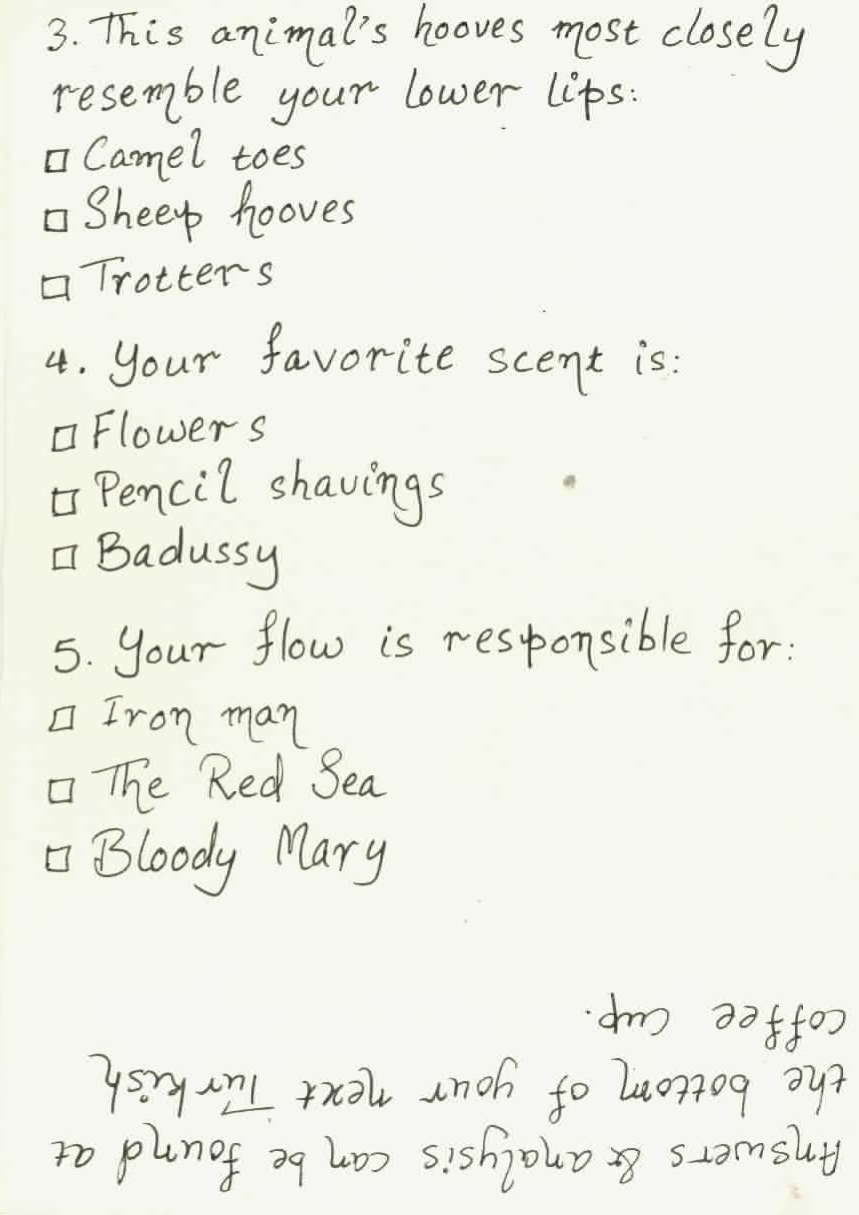 3. This animal's hooves most closely
resemble your lower lips:
□ Camel toes
□ Sheep hooves
□ Trotters
4. Your favorite scent is:
□ Flowers
□ Pencil shavings
□ Badussy
5. Your flow is responsible for:
□ Iron man
□ The Red Sea
□ Bloody Mary
Answers & analysis can be found at
the bottom of your next Turkish
coffee cup.